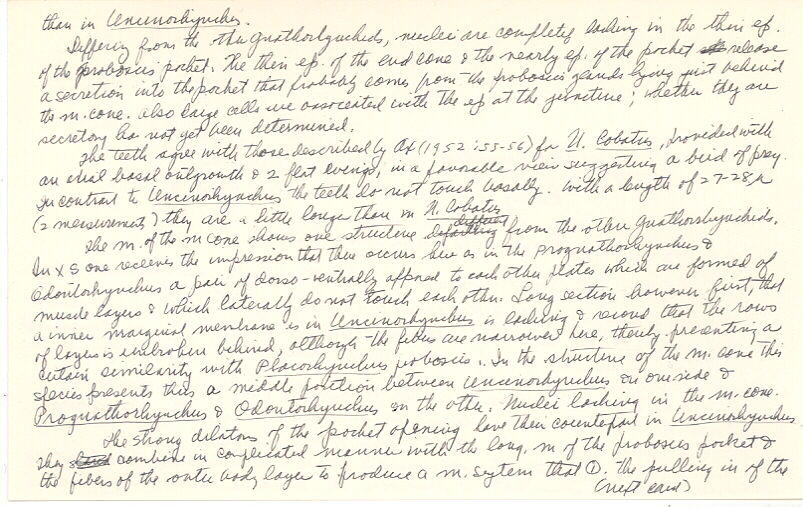 than in Uncinorhynchus.
Differing from the other Gnathorhynchids, nuclei are completely lacking in the thin ep.
of the proboscis pocket. The thin ep. of the end cone & the nearly ep. of the pocket release
a secretion into the pocket that probably comes from the proboscis glands lying just behind
the m. cone. Also large cells are associated with the ep at the juncture; whether they are
secretory has not yet been determined.
The teeth agree with those described by Ax (1952:55-56) for U. Cobatus, provided with
an axial basal outgrowth & 2 flat wings, in a favorable view suggesting a bird of prey.
In contrast to Uncinorhynchus the teeth do not touch basally. With a length of 27-28µ
(2 measurements) they are a little longer than in N. Cobatus
The m. of the m cone shows one structure different from the other Gnathorhynchids.
In XS one receives the impression that there occurs here as in the Prognathorhynchus &
Odontorhynchus a pair of dorso-ventrally apposed to each other plates which are formed of
muscle layers & which laterally do not touch each other. Long section however first, that
a inner marginal membrane as in Uncinorhynchus is lacking & second that the rows
of layers is unbroken behind, although the fibers are narrower here, thereby presenting a
certain similarity with Placorhynchus proboscis. In the structure of the m. cone this
species presents thus a middle position between Uncinorhynchus on one side &
Prognathorhynchus & Odontorhynchus on the other. Nuclei lacking in the m. cone.
The strong dilators of the pocket opening have their counterpart in Uncinorhynchus
They combine in complicated manner with the long. m of the proboscis pocket &
the fibers of the outer body layer to produce a m. system that ①. The pulling in of the
(next card)